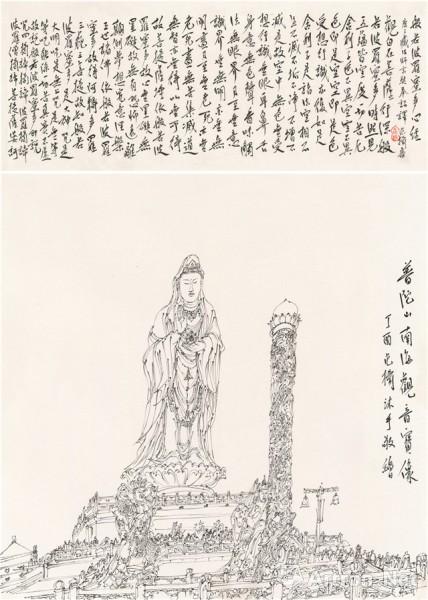 般若波羅蜜多心經
唐三藏法師玄奘奉詔譯
觀自在菩薩行深般
若波羅蜜多時照見
五蘊皆空度一切苦厄
舍利子色不異空空不異
色色即是空空即是色
受想行識亦復如是
舍利子是諸法空相
不生不滅不垢不淨不增不
減是故空中無色無受
想行識無眼耳鼻舌
身意無色聲香味觸
法無眼界乃至無意
識界無無明亦無無
明盡乃至無老死亦無
老死盡無苦集滅道
無智亦無得以無所得
故菩提薩埵依般若波
羅蜜多故心無罣礙無
罣礙故無有恐怖遠離
顛倒夢想究竟涅槃
三世諸佛依般若波羅
蜜多故得阿耨多羅
三藐三菩提故知般若
波羅蜜多是大神咒是
大明咒是無上咒是無等
等咒能除一切苦真實不虛
故說般若波羅蜜多咒即說
咒曰揭諦揭諦波羅揭諦
波羅僧揭諦菩提薩婆訶
普陀山南海觀音寶像
丁酉范沐手敬繪
Artron.Net